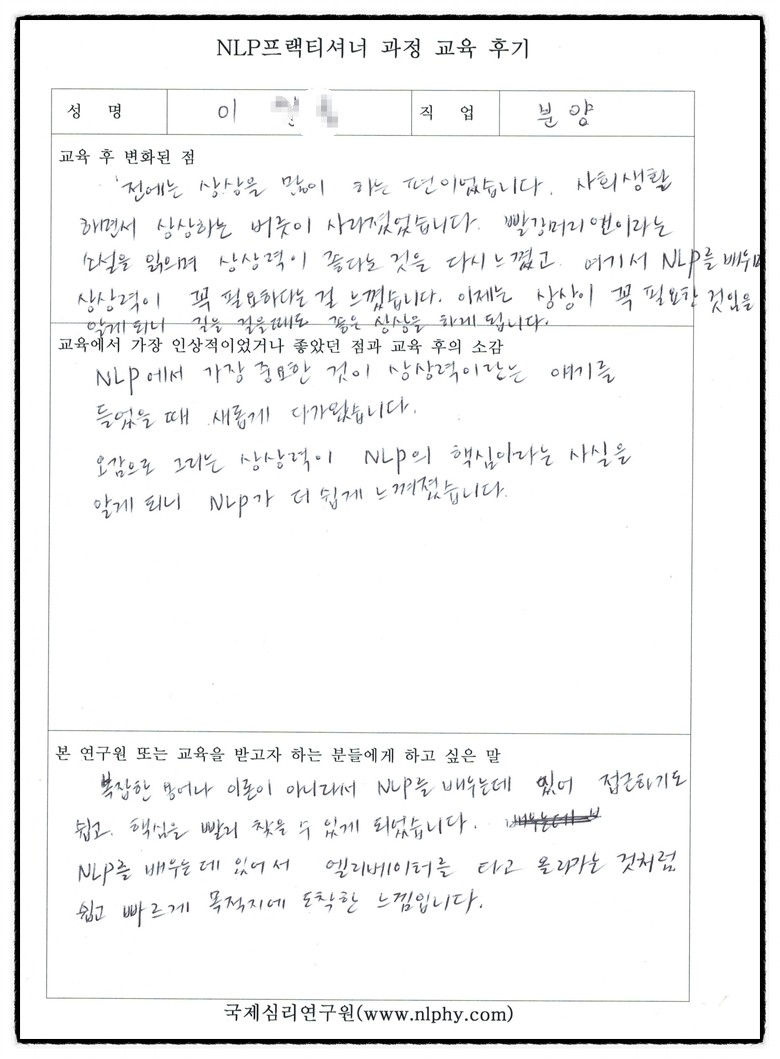 NLP프랙티셔너 과정 교육 후기
성 명 이 직 업 분양
교육 후 변화된 점
전에는 상상을 많이 하는 편이었습니다. 사회생활
하면서 상상하는 버릇이 사라졌었습니다. 빨강머리앤이라는
소설을 읽으며 상상력이 좋다는 것을 다시 느꼈고. 여기서 NLP를 배우며
상상력이 꼭 필요하다는 걸 느꼈습니다. 이제는 상상이 꼭 필요한 것임을
알게 되니 길을 걸을때도 좋은 상상을 하게 됩니다.
교육에서 가장 인상적이었거나 좋았던 점과 교육 후의 소감
NLP에서 가장 중요한 것이 상상력이란는 얘기를
들었을 때 새롭게 다가왔습니다.
오감으로 그리는 상상력이 NLP의 핵심이라는 사실을
알게 되니 NLP가 더 쉽게 느껴졌습니다.
본 연구원 또는 교육을 받고자 하는 분들에게 하고 싶은 말
복잡한 용어나 이론이 아니라서 NLP를 배우는데 있어 접근하기도
쉽고. 핵심을 빨리 찾을 수 있게 되었습니다.
NLP를 배우는데 있어서 엘리베이터를 타고 올라가는 것처럼
쉽고 빠르게 목적지에 도착한 느낌입니다.
국제심리연구원(www.nlphy.com)